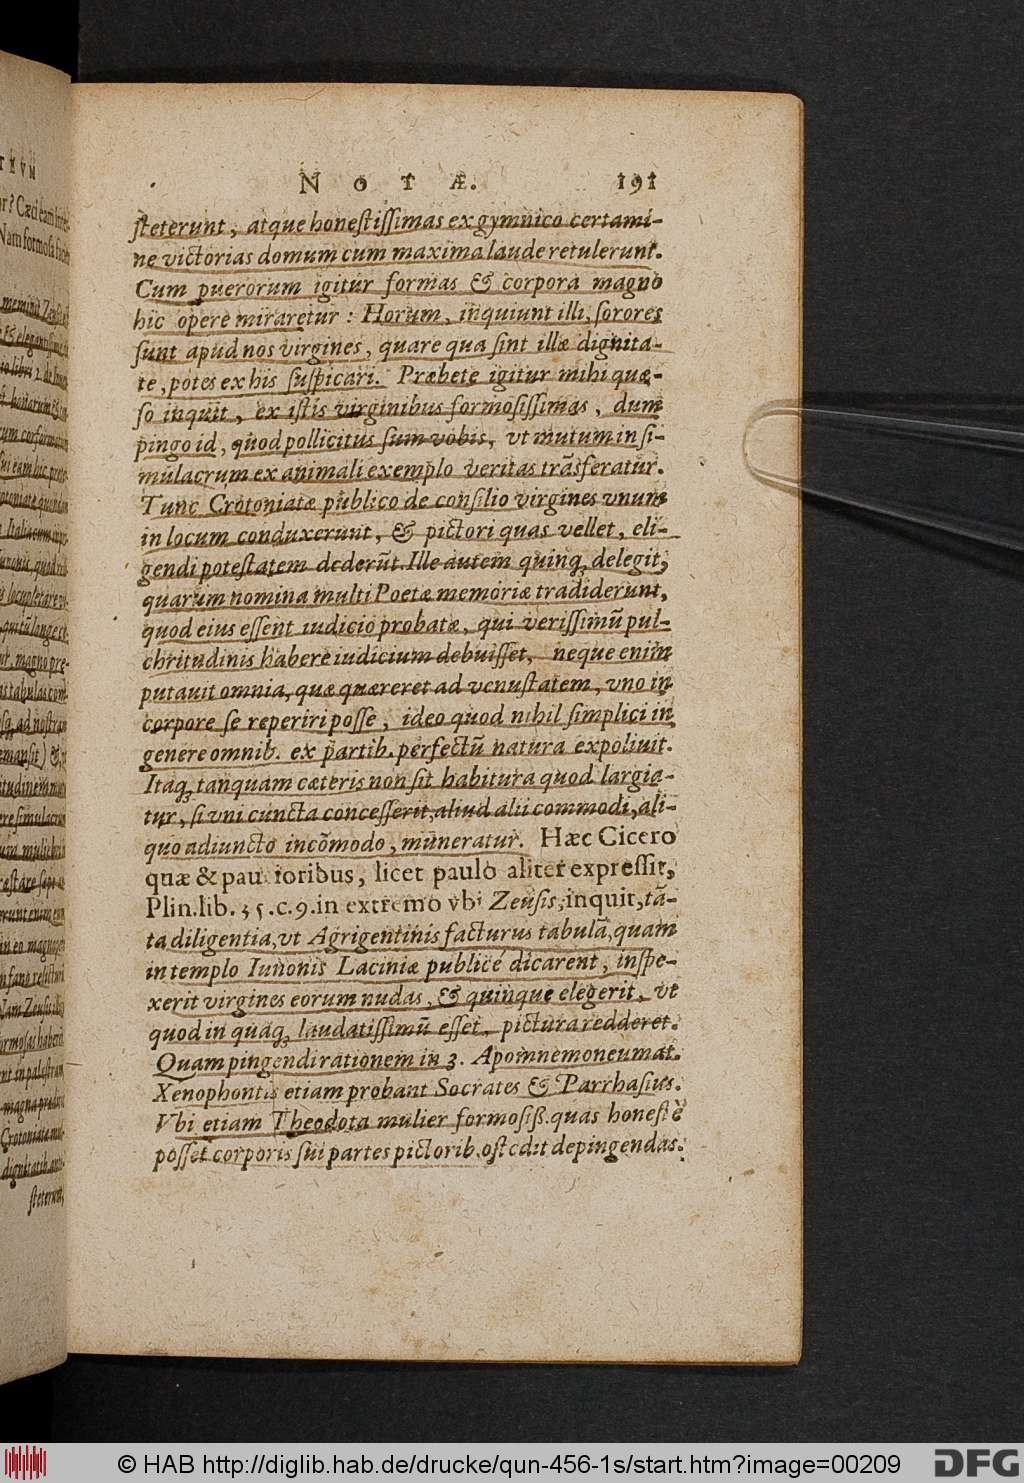 NOTÆ. 191
ſteterunt, atque honeſtiſſimas ex gymnico certami-
ne victorias domum cum maxima laude retulerunt.
Cum puerorum igitur formas & corpora magno
hic opere miraretur: Horum, inquiunt illi, ſorores
ſunt apud nos virgines, quare qua ſint illæ dignita-
te, potes ex his ſuſpicari. Præbete igitur mihi quæ-
ſo inquit, ex iſtis virginibus formoſiſſimas, dum
pingo id, quod pollicitus ſum vobis, vt mutum in ſi-
mulacrum ex animali exemplo veritas trãsferatur.
Tunc Crotoniatæ publico de conſilio virgines vnum
in locum conduxerunt, & pictori quas vellet, eli-
gendi poteſtatem dederũt. Ille autem quinq; delegit,
quarum nomina multi Poetæ memoriæ tradiderunt,
quod eius eſſent iudicio probatæ, qui veriſſimũ pul-
chritudinis habere iudicium debuiſſet, neque enim
putauit omnia, quæ quæreret ad venuſtatem, vno in
corpore ſe reperiri poſſe, ideo quod nihil ſimplici in
genere omnib. ex partib. perfectũ natura expoliuit.
Itaq; tanquam cæteris non ſit habitura quod largia-
tur, ſi vni cuncta conceſſerit, aliud alii commodi, ali-
quo adiuncto incõmodo, muneratur. Hæc Cicero
quæ & pau ioribus, licet paulò aliter expreſſit,
Plin. lib. 35. c. 9. in extremo vbi Zeuſis, inquit, tã-
ta diligentia, vt Agrigentinis facturus tabulã, quam
in templo Iunonis Laciniæ publicé dicarent, inſpe-
xerit virgines eorum nudas, & quinque elegerit, vt
quod in quaq; laudatiſſimũ eſſet, pictura redderet.
Quam pingendi rationem in 3. Apomnemoneumat.
Xenophontis etiam probant Socrates & Parrhaſius.
Vbi etiam Theodota mulier formoſiß. quas honeſtè
poſſet corporis ſui partes pictorib. oſtedit depingendas.
© HAB http://diglib.hab.de/drucke/qun-456-1s/start.htm?image=00209
DFG